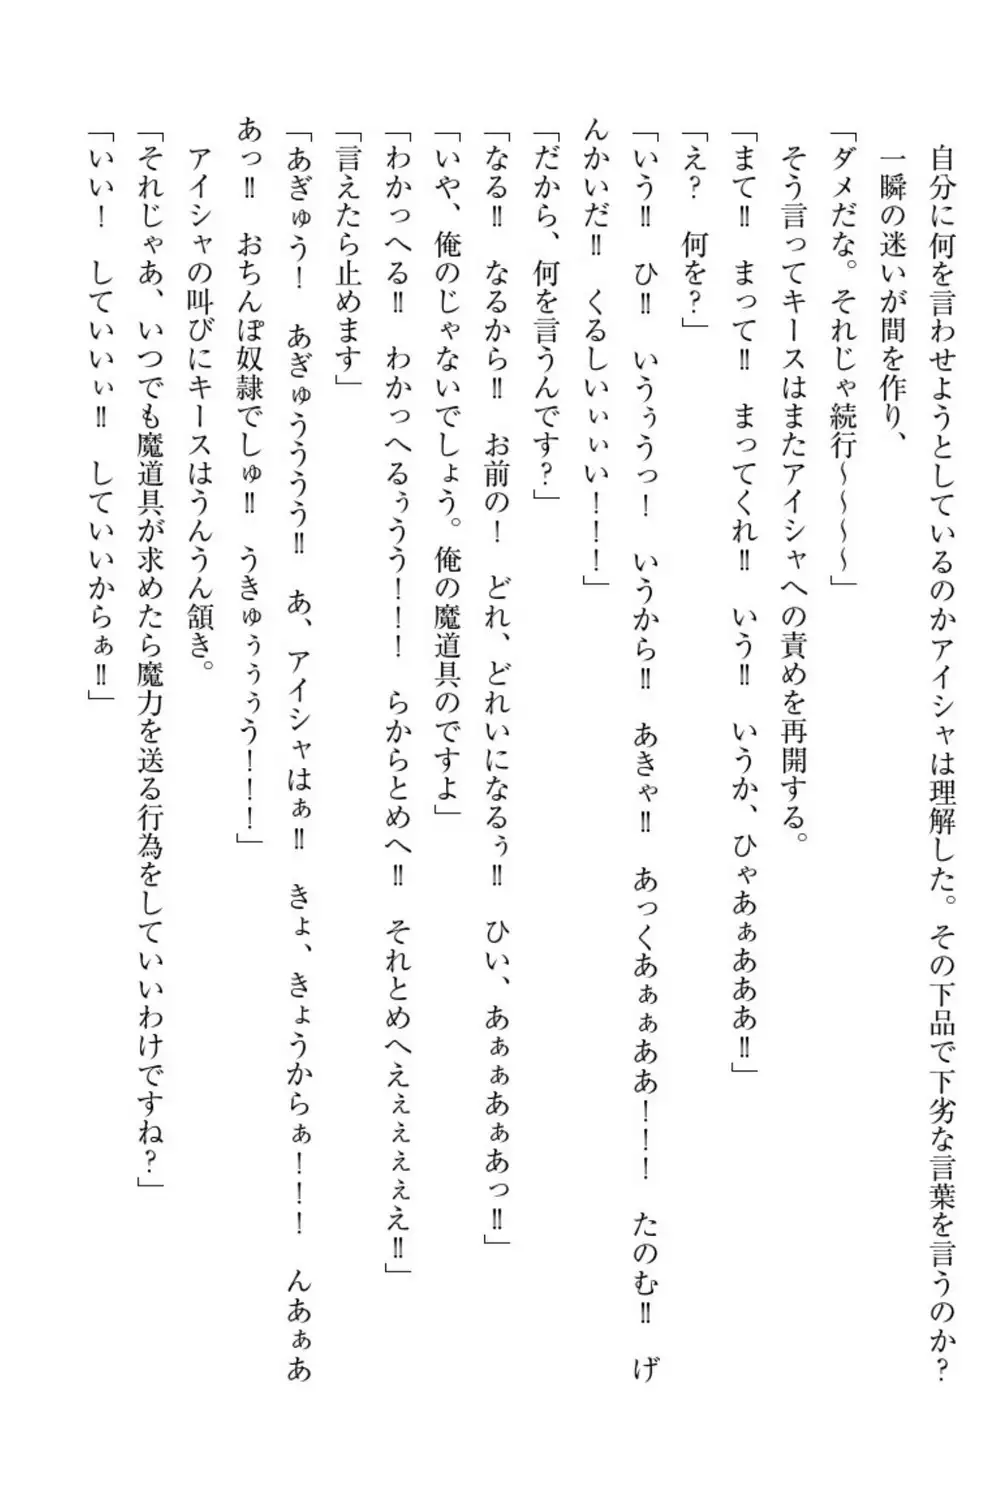 自分に何を言わせようとしているのかアイシャは理解した。その下品で下劣な言葉を言うのか?
一瞬の迷いが間を作り、
「ダメだな。それじゃ続行〜〜〜〜」
そう言ってキースはまたアイシャへの責めを再開する。
「まて‼ まって‼ まってくれ‼ いう‼ いうか、ひゃあぁあああ‼」
「え? 何を?」
「いう‼ ひ‼ いうぅうっ! いうから‼ あきゃ‼ あっくあぁぁああ!!! たのむ‼ げ
んかいだ‼ くるしいぃぃい!!!」
「だから、何を言うんです?」
「なる‼ なるから‼ お前の! どれ、どれいになるぅ‼ ひい、あぁぁあぁあっ‼」
「いや、俺のじゃないでしょう。俺の魔道具のですよ」
「わかっへる‼ わかっへるぅうう!!! らからとめへ‼ それとめへえぇぇぇぇえ‼」
「言えたら止めます」
「あぎゅう! あぎゅうううう‼ あ、アイシャはぁ‼ きょ、きょうからぁ!!! んあぁあ
あっ‼ おちんぽ奴隷でしゅ‼ うきゅぅぅぅう!!!」
アイシャの叫びにキースはうんうん頷き。
「それじゃあ、いつでも魔道具が求めたら魔力を送る行為をしていいわけですね?」
「いい! していいぃ‼ していいからぁ‼」